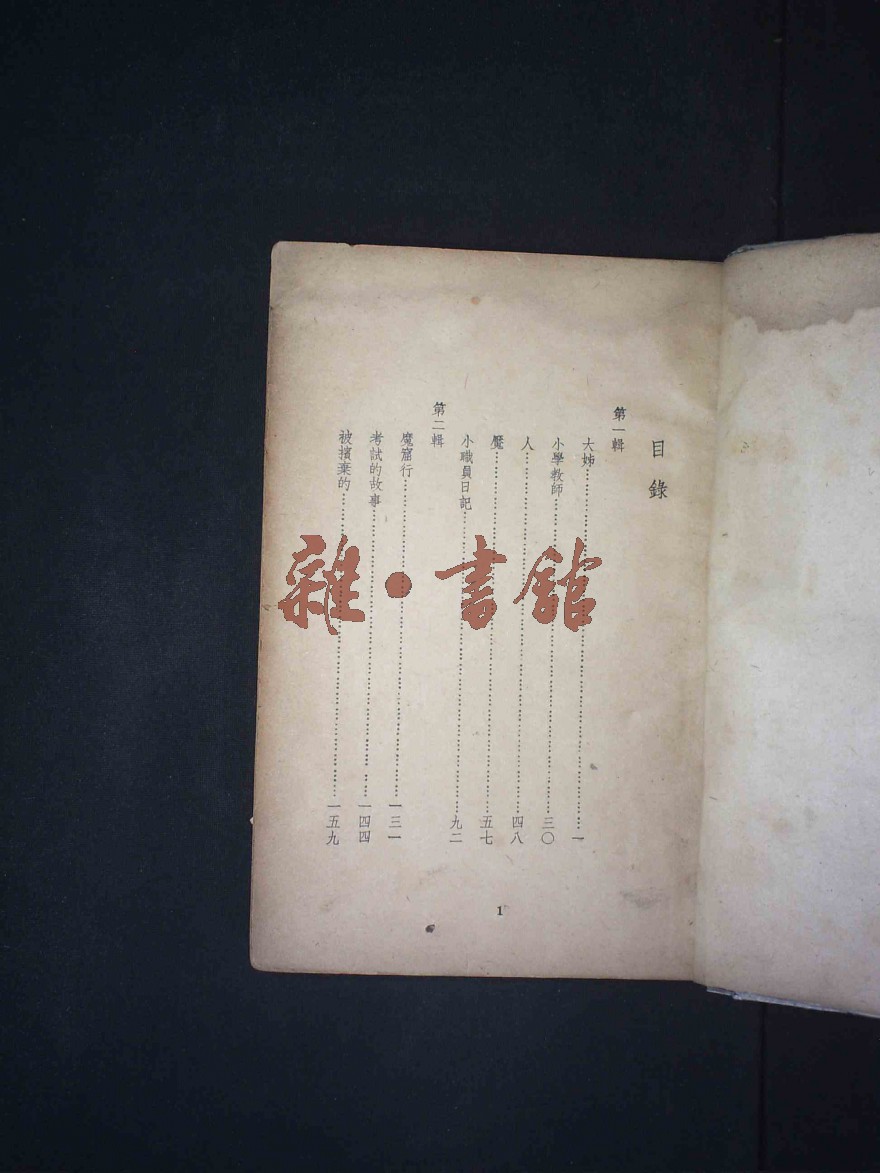 目錄
第一輯
大姊……一
小學教師……三〇
人……四八
魘……五七
小職員日記……九二
第二輯
魔窟行……一三一
考試的故事……一四四
被擯棄的……一五九
1
雜·書館